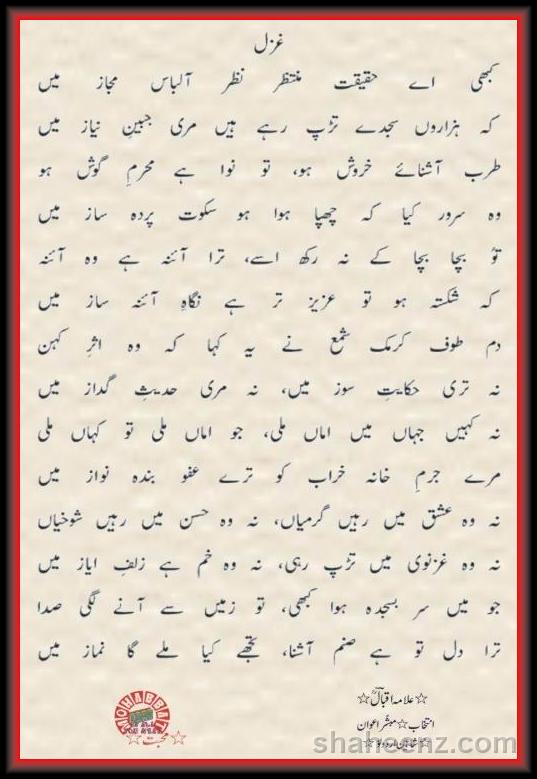 غزل
کبھی اے حقیقت منتظر نظر آلباس مجاز میں
کہ ہزاروں سجدے تڑپ رہے ہیں مری جبینِ نیاز میں
طرب آشنائے خروش ہو، تو نوا ہے محرمِ گوش ہو
وہ سرور کیا کہ چھپا ہوا ہو سکوت پردہ ساز میں
توُ بچا بچا کے نہ رکھ اسے، ترا آئنہ ہے وہ آئنہ
کہ شکستہ ہو تو عزیز تر ہے نگاہِ آئنہ ساز میں
دم طوف کرمک شمع نے یہ کہا کہ وہ اثرِ کہن
نہ تری حکایتِ سوز میں، نہ مری حدیثِ گداز میں
نہ کہیں جہاں میں اماں ملی، جو اماں ملی تو کہاں ملی
مرے جرمِ خانہ خراب کو ترے عفو بندہ نواز میں
نہ وہ عشق میں رہیں گرمیاں، نہ وہ حسن میں رہیں شوخیاں
نہ وہ غزنوی میں تڑپ رہی، نہ وہ خم ہے زلفِ ایاز میں
جو میں سر بسجدہ ہوا کبھی، تو زمیں سے آنے لگی صدا
ترا دل تو ہے صنم آشنا، تجھے کیا ملے گا نماز میں
☆علامہ اقبالؒ☆
انتخاب☆مبشر اعوان
shaheenz.com
MOHABBAT
☆محبت☆